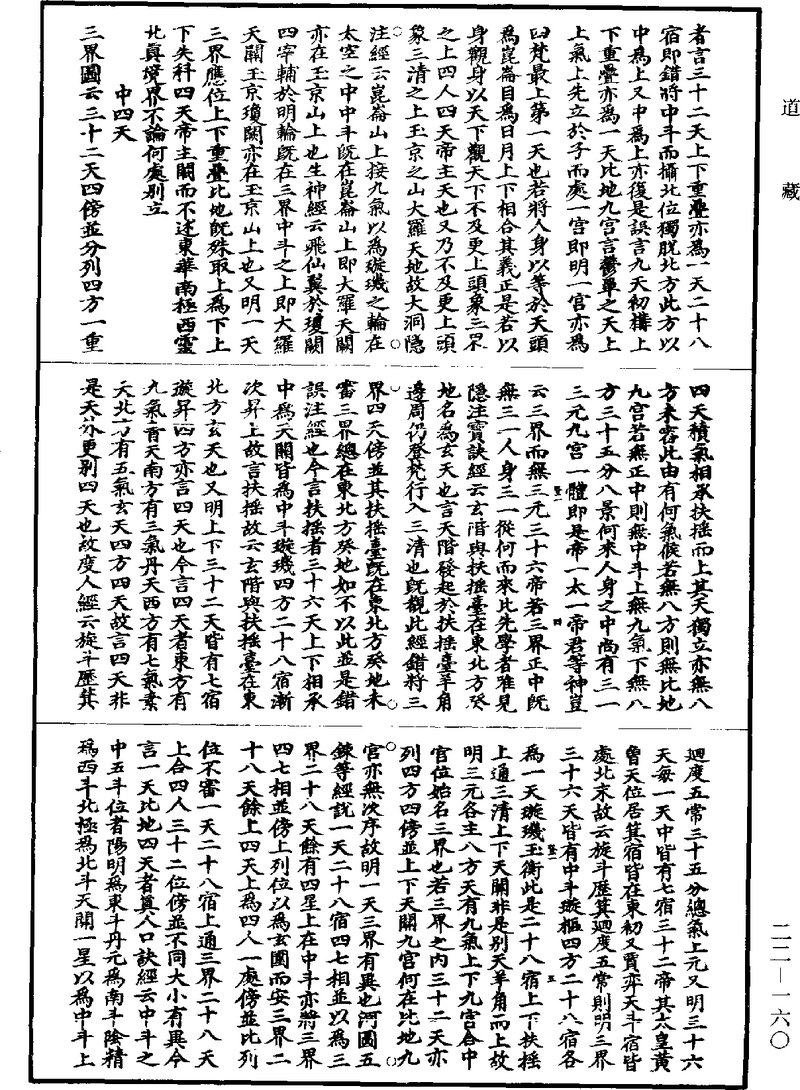 道藏
者言三十二天上下重疊亦爲一天二十八
宿即錯將中斗而攝北位獨脫北方此方以
中爲上又中爲上亦復是誤言九天初構上
下重疊亦爲一天比地九宮言鬱單之天上
上氣上先立於子而處一宮即明一宮亦爲
四梵最上第一天也若將人身以等於天頭
爲崑崙目爲日月上下相合其義正是若以
身觀身以天下觀天下不及更上頭象三界
之上四人四天帝主天也又乃不及更上頭
象三清之上玉京之山大羅天地故大洞隱
注經云崑崙山上接九氣以爲璇璣之輪在
太空之中中斗既在崑崙山上即大羅天闕
亦在玉京山上也生神經云飛仙翼於瓊闕
四宰輔於明輪既在三界中斗之上即大羅
天闕玉京瓊闕亦在玉京山上也又明一天
三界應位上下重疊比地既殊取上爲下上
下失科四天帝主闕而不述東華南極西靈
北真境界不論何處別立
中四天
三界圖云三十二天四傍並分列四方一重
四天積氣相承扶搖而上其天獨立亦無八
方未審此由有何氣候若無八方則無比地
九宮若無正中則無中斗上無九氣下無八
方三十五分八景何來人身之中尚有三一
三元九宮一體即是帝一太一帝君等神豈
云三界而無三元三十六帝若三界正中既
無三一人身三一從何而來比先學者雖見
隱注寶訣經云玄階與扶搖臺在東北方癸
地名爲玄天也言天階發起於扶搖臺羊角
邊周仍登梵行入三清也既觀此經錯將三
界四天傍並其扶搖臺既在東北方癸地未
審三界總在東北方癸地如不以此並是錯
誤注經也今言扶搖者三十六天上下相承
中爲天關皆爲中斗璇璣四方二十八宿漸
次昇上故言扶搖故云玄階與扶搖臺在東
北方玄天也又明上下三十二天皆有七宿
璇昇四方亦言四天也今言四天者東方有
九氣青天南方有三氣丹天西方有七氣素
天北方有五氣玄天四方四天故言四天非
是天外更別四天也故度人經云旋斗歷箕
迴度五常三十五分總氣上元又明三十六
天每一天中皆有七宿三十二帝其太皇黃
曾天位居箕宿皆在東初又賈奕天斗宿皆
處北末故云旋斗歷箕迴度五常則明三界
三十六天皆有中斗璇樞四方二十八宿各
爲一天璇璣玉衡此是二十八宿上下扶搖
上通三清上下天關非是別天羊角而上故
明三元各主八方天有九氣上下九宮合中
官位始名三界也若三界之內三十二天亦
列四方四傍並上下天關九宮何在比地九
宮亦無次序故明一天三界有異也河圖五
鍊等經説一天二十八宿四七相並以爲三
界二十八天餘有四星上在中斗亦將三界
四七相並傍上列位以爲玄圖而安三界二
十八天餘上四天上爲四人一處傍並比列
位不審一天二十八宿上通三界二十八天
上合四人三十二位傍並不同大小有異今
言一天比地四天者真人口訣經云中斗之
中五斗位者陽明爲東斗丹元爲南斗陰精
爲西斗北極爲北斗天關一星以爲中斗上
二二—一六〇